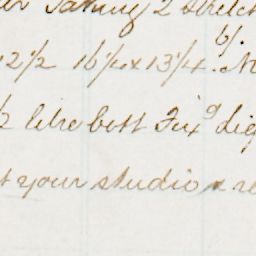 Taking 2 stretch
12 1/2 16 1/4 x 13 1/4. 6/.
1/2 like bott Fix^g
t your studio & re